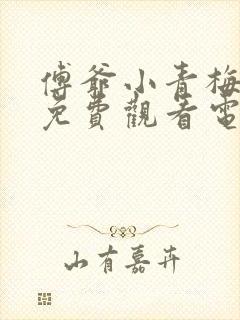 傅爺小青梅
免費觀看電
山有嘉卉